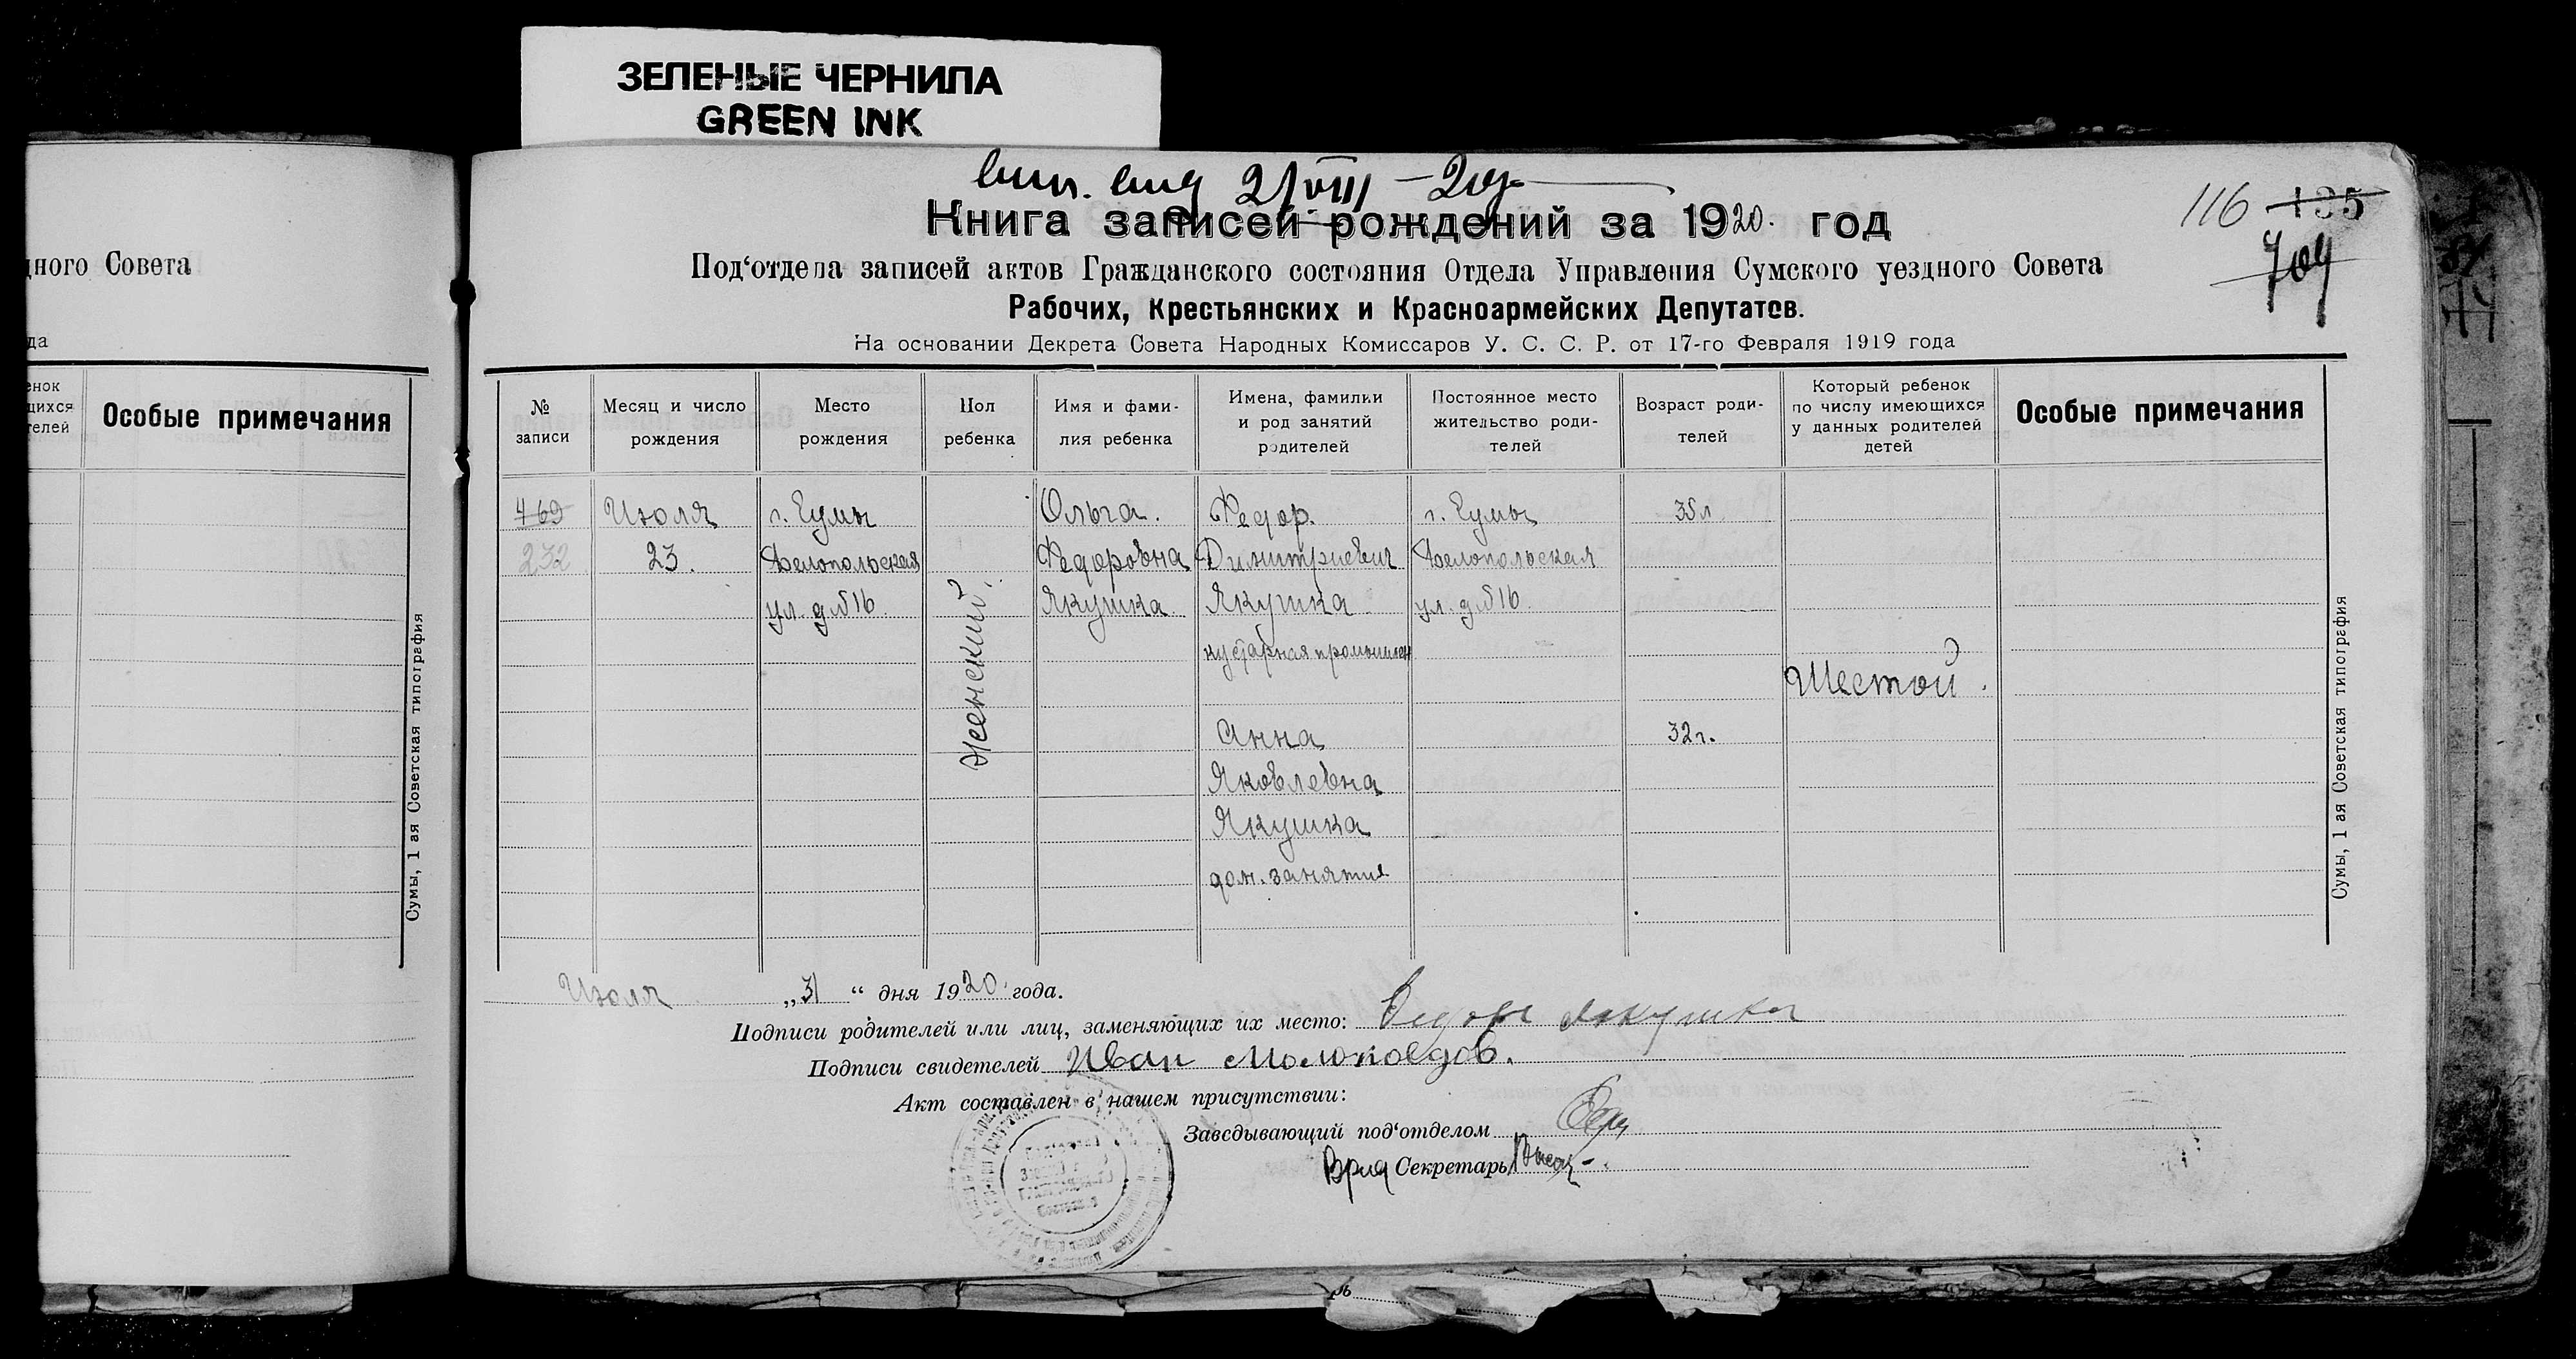 ЗЕЛЕНЫЕ ЧЕРНИЛА
GREEN INK
дного Совета
да
енок
щихся
телей
Особые примечания
Сумы, 1 ая Советская типография
21/VIII – 20г.
116 135
709
Книга записей рождений за 1920. год
Под‘отдела записей актов Гражданского состояния Отдела Управления Сумского уездного Совета
Рабочих, Крестьянских и Красноармейских Депутатов.
На основании Декрета Совета Народных Комиссаров У. С. С. Р. от 17-го Февраля 1919 года
№ записи
Месяц и число рождения
Место рождения
Пол ребенка
Имя и фами-
лия ребенка
Имена, фамилии
и род занятий
родителей
Постоянное место
жительство роди-
телей
Возраст роди-
телей
Который ребенок
по числу имеющихся
у данных родителей
детей
Особые примечания
469
232
Июля
23.
г. Сумы
Белопольская
ул. д № 16
Женский
Ольга.
Федоровна
Якушка
Федор.
Димитриевич
Якушка
кустарная промышлен
Анна
Яковлевна
Якушка
дом. занятия
г. Сумы
Белопольская
ул. д № 16
35 л
32 г.
Шестой.
Сумы, 1 ая Советская типография
Июля „31“ дня 1920. года.
Подписи родителей или лиц, заменяющих их место: Федор Якушка
Подписи свидетелей Иван Молокоедов.
Акт составлен в нашем присутствии:
Заведывающий под‘отделом
Врид Секретарь